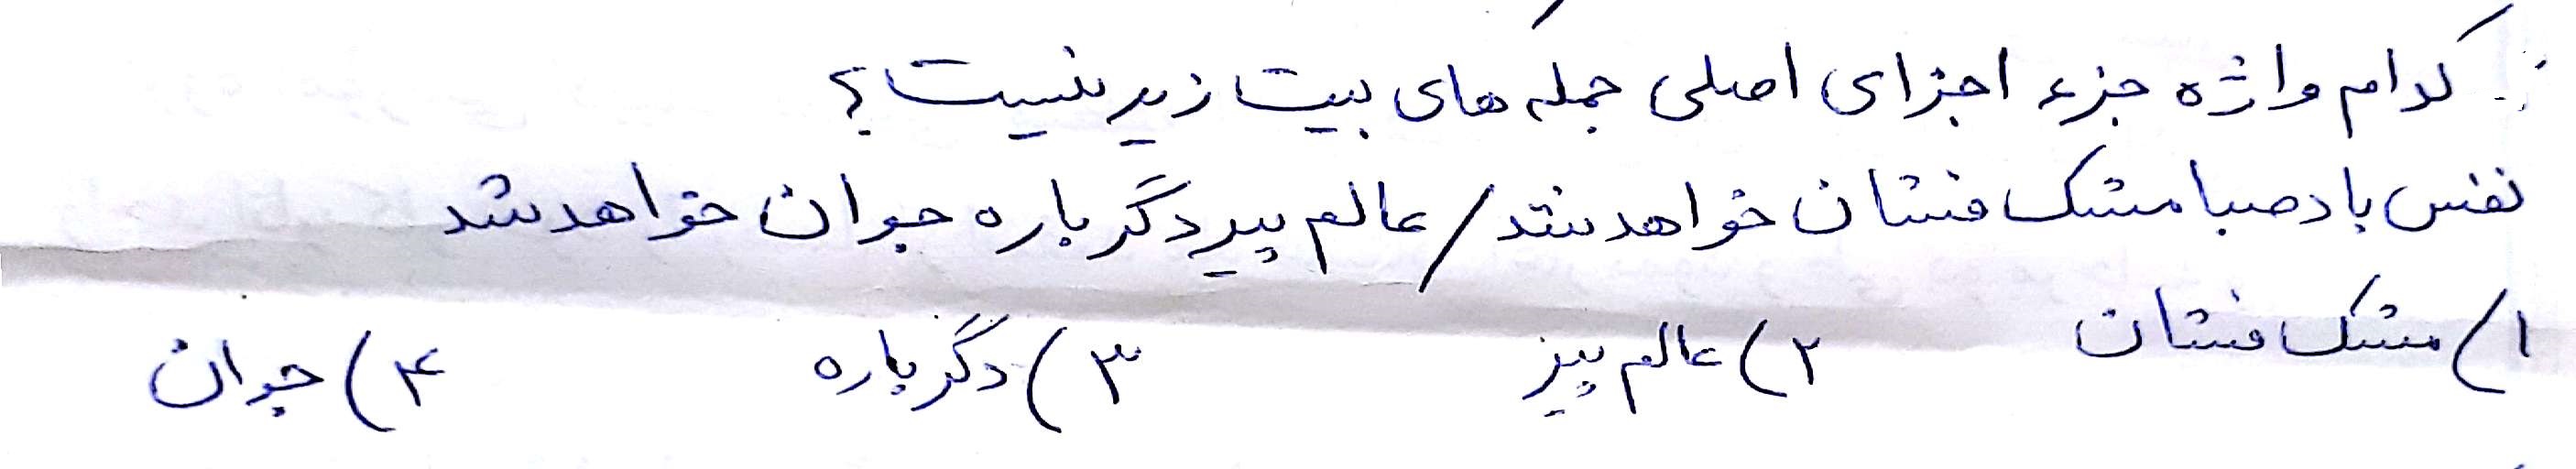 کدام واژه جزء اجزای اصلی جمله های بیت زیر نیست؟
نفس باد صبا مشک فشان خواهد شد / عالم پیر دگر باره جوان خواهد شد
۱) مشک فشان ۲) عالم پیر ۳) دگر باره ۴) جوان